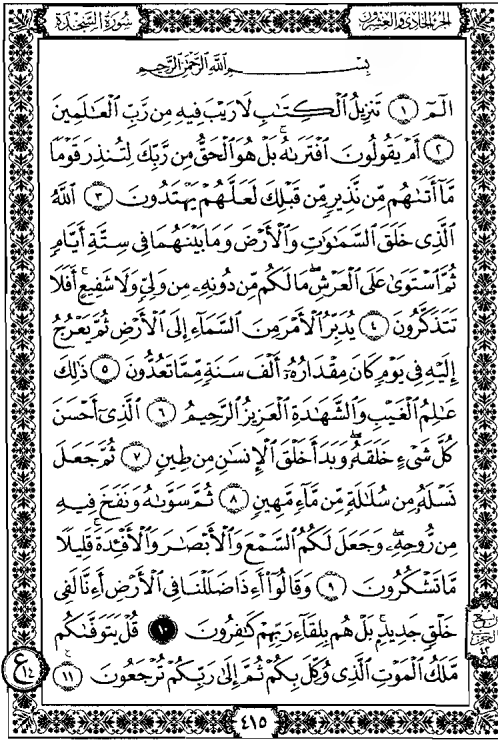 سُورَةُ السَّجْدَةِ
الجزء الحادي والعشرون
بِسْمِ اللَّهِ الرَّحْمَٰنِ الرَّحِيمِ
الٓمٓ ١ تَنزِيلُ ٱلْكِتَٰبِ لَا رَيْبَ فِيهِ مِن رَّبِّ ٱلْعَٰلَمِينَ
٢ أَمْ يَقُولُونَ ٱفْتَرَىٰهُ بَلْ هُوَ ٱلْحَقُّ مِن رَّبِّكَ لِتُنذِرَ قَوْمًا
مَّآ أَتَىٰهُم مِّن نَّذِيرٍ مِّن قَبْلِكَ لَعَلَّهُمْ يَهْتَدُونَ ٣ ٱللَّهُ
ٱلَّذِى خَلَقَ ٱلسَّمَٰوَٰتِ وَٱلْأَرْضَ وَمَا بَيْنَهُمَا فِى سِتَّةِ أَيَّامٍ
ثُمَّ ٱسْتَوَىٰ عَلَى ٱلْعَرْشِ مَا لَكُم مِّن دُونِهِۦ مِن وَلِىٍّ وَلَا شَفِيعٍ أَفَلَا
تَتَذَكَّرُونَ ٤ يُدَبِّرُ ٱلْأَمْرَ مِنَ ٱلسَّمَآءِ إِلَى ٱلْأَرْضِ ثُمَّ يَعْرُجُ
إِلَيْهِ فِى يَوْمٍ كَانَ مِقْدَارُهُۥٓ أَلْفَ سَنَةٍ مِّمَّا تَعُدُّونَ ٥ ذَٰلِكَ
عَٰلِمُ ٱلْغَيْبِ وَٱلشَّهَٰدَةِ ٱلْعَزِيزُ ٱلرَّحِيمُ ٦ ٱلَّذِىٓ أَحْسَنَ
كُلَّ شَىْءٍ خَلَقَهُۥ وَبَدَأَ خَلْقَ ٱلْإِنسَٰنِ مِن طِينٍ ٧ ثُمَّ جَعَلَ
نَسْلَهُۥ مِن سُلَٰلَةٍ مِّن مَّآءٍ مَّهِينٍ ٨ ثُمَّ سَوَّىٰهُ وَنَفَخَ فِيهِ
مِن رُّوحِهِۦ وَجَعَلَ لَكُمُ ٱلسَّمْعَ وَٱلْأَبْصَٰرَ وَٱلْأَفْـِٔدَةَ قَلِيلًا
مَّا تَشْكُرُونَ ٩ وَقَالُوٓا۟ أَءِذَا ضَلَلْنَا فِى ٱلْأَرْضِ أَءِنَّا لَفِى
خَلْقٍ جَدِيدٍۭ بَلْ هُم بِلِقَآءِ رَبِّهِمْ كَٰفِرُونَ ١٠ قُلْ يَتَوَفَّىٰكُم
مَّلَكُ ٱلْمَوْتِ ٱلَّذِى وُكِّلَ بِكُمْ ثُمَّ إِلَىٰ رَبِّكُمْ تُرْجَعُونَ ١١
ع
١٤
٤٢
٤١٥